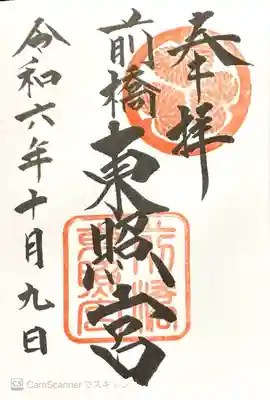 奉拝
前橋
東照宮
前橋
東照宮
令和六年十月九日
CS CamScannerでスキャン